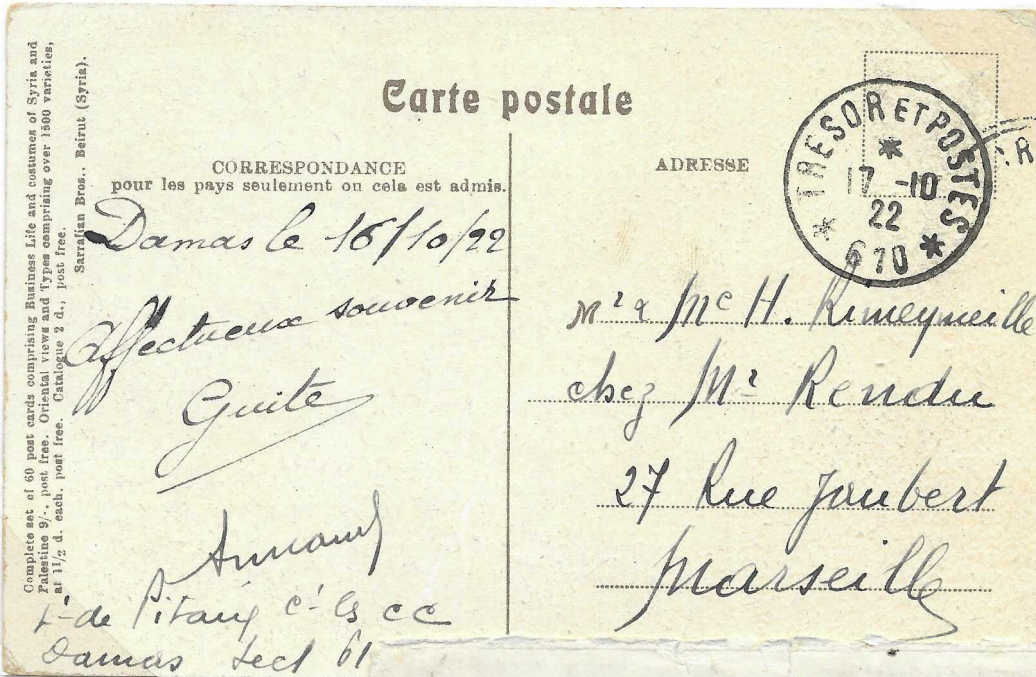 Complete set of 60 post cards comprising Business Life and costumes of Syria and
Palestine 9/-. post free. Oriental views and Types comprising over 1500 varieties,
at 11/2 d. each. post free. Catalogue 2 d., post free.
Sarrafian Bros., Beirut (Syria).
Carte postale
CORRESPONDANCE
pour les pays seulement ou cela est admis.
Damas le 16/10/22
Affectueux souvenir
Guite
Armand
Lt de
Damas Sect 61
ADRESSE
TRESOR ET POSTES
17 -10
22
* 610 *
Mr & Me H. Rimeymeille
chez Mr Rendu
27 Rue Joubert
Marseille